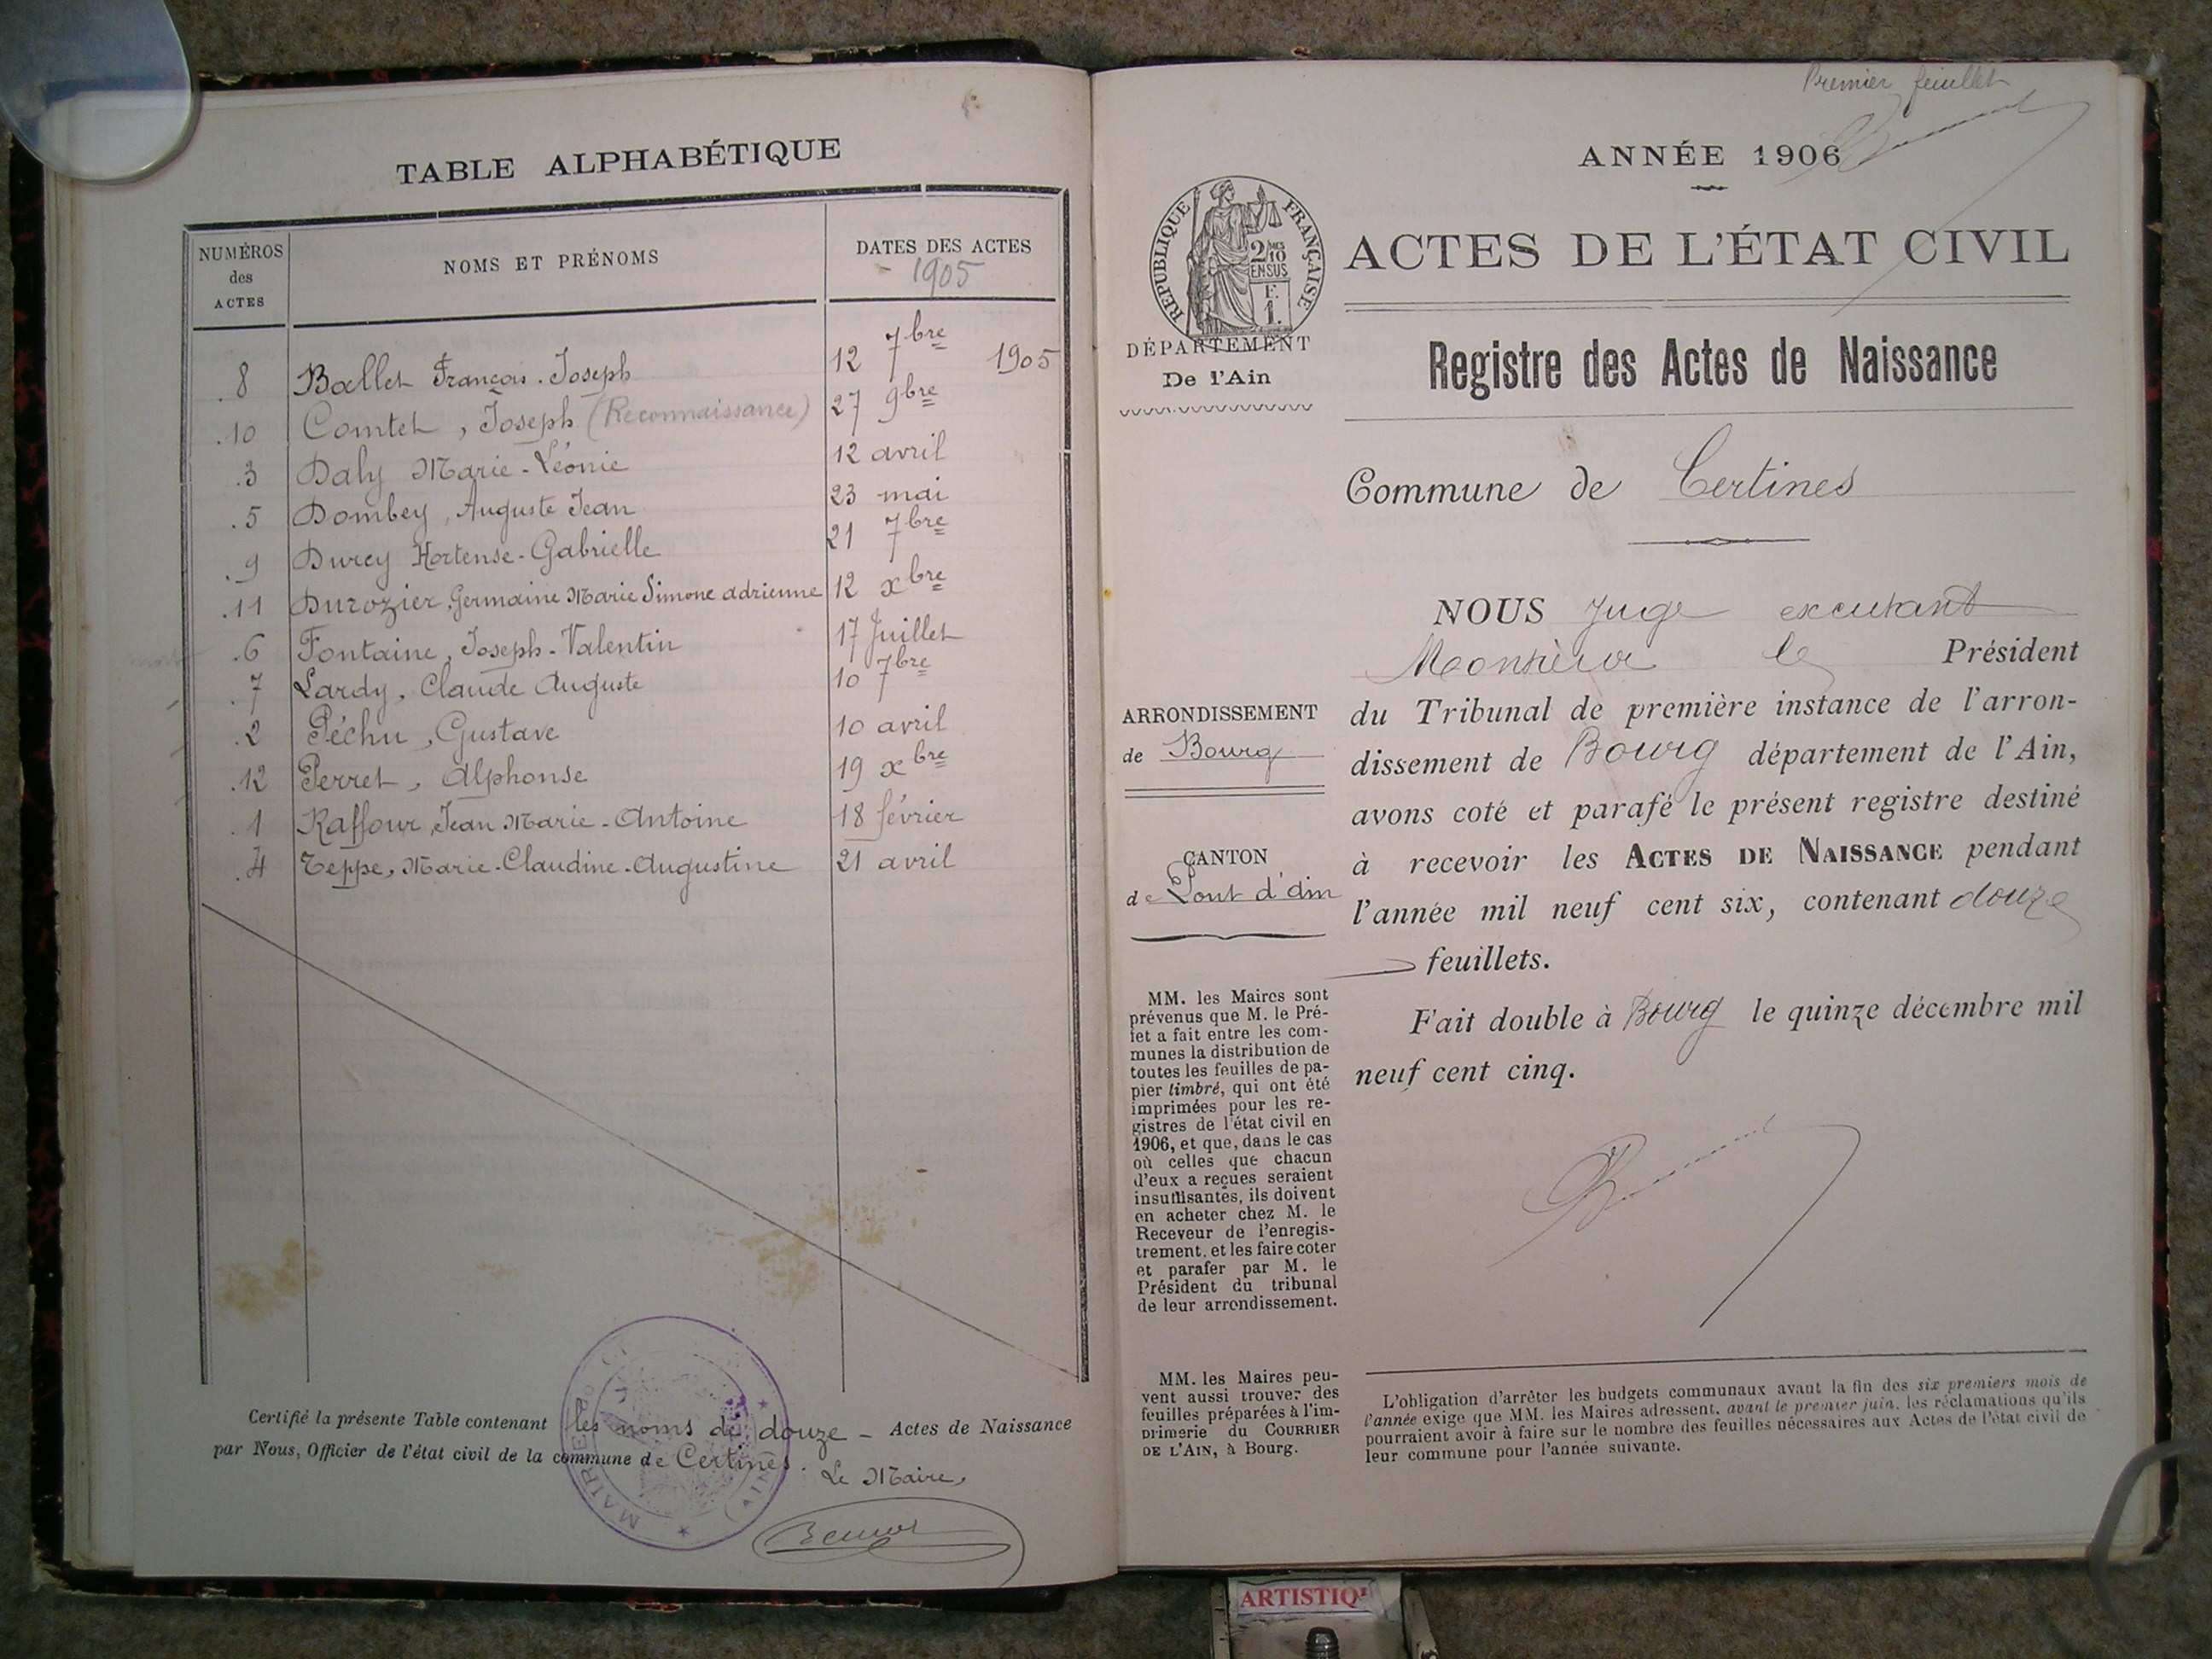 TABLE ALPHABÉTIQUE
NUMÉROS des ACTES
NOMS ET PRÉNOMS
DATES DES ACTES
1905
8 Ballet François-Joseph 12 7bre 1905
10 Comtet, Joseph (Reconnaissance) 27 9bre
3 Daly Marie-Léonie 12 avril
5 Dombey, Auguste Jean 23 mai
9 Durey Hortense-Gabrielle 21 7bre
11 Durozier, Germaine Marie Simone adrienne 12 xbre
6 Fontaine, Joseph-Valentin 17 Juillet
7 Lardy, Claude Auguste 10 7bre
2 Péchu, Gustave 10 avril
12 Perret, Alphonse 19 xbre
1 Raffour, Jean Marie-Antoine 18 février
4 Teppe, Marie-Claudine-Augustine 21 avril
Certifié la présente Table contenant les noms de douze - Actes de Naissance
par Nous, Officier de l'état civil de la commune de Certines.
Le Maire,
MAIRIE (AIN)
Premier feuillet
ANNÉE 1906
RÉPUBLIQUE FRANÇAISE
2/10 EN SUS
F. 1.
ACTES DE L'ÉTAT CIVIL
DÉPARTEMENT
De l'Ain
Registre des Actes de Naissance
Commune de Certines
NOUS Juge
Monsieur le Président
du Tribunal de première instance de l'arron-
dissement de Bourg département de l'Ain,
avons coté et parafé le présent registre destiné
à recevoir les ACTES DE NAISSANCE pendant
l'année mil neuf cent six, contenant douze
feuillets.
Fait double à Bourg le quinze décembre mil
neuf cent cinq.
ARRONDISSEMENT
de Bourg
CANTON
de Pont d'ain
MM. les Maires sont
prévenus que M. le Pré-
fet a fait entre les com-
munes la distribution de
toutes les feuilles de pa-
pier timbré, qui ont été
imprimées pour les re-
gistres de l'état civil en
1906, et que, dans le cas
où celles que chacun
d'eux a reçues seraient
insuffisantes, ils doivent
en acheter chez M. le
Receveur de l'enregis-
trement, et les faire coter
et parafer par M. le
Président du tribunal
de leur arrondissement.
MM. les Maires peu-
vent aussi trouver des
feuilles préparées à l'im-
primerie du COURRIER
DE L'AIN, à Bourg.
L'obligation d'arrêter les budgets communaux avant la fin des six premiers mois de
l'année exige que MM. les Maires adressent, avant le premier juin, les réclamations qu'ils
pourraient avoir à faire sur le nombre des feuilles nécessaires aux Actes de l'état civil de
leur commune pour l'année suivante.
ARTISTIQ